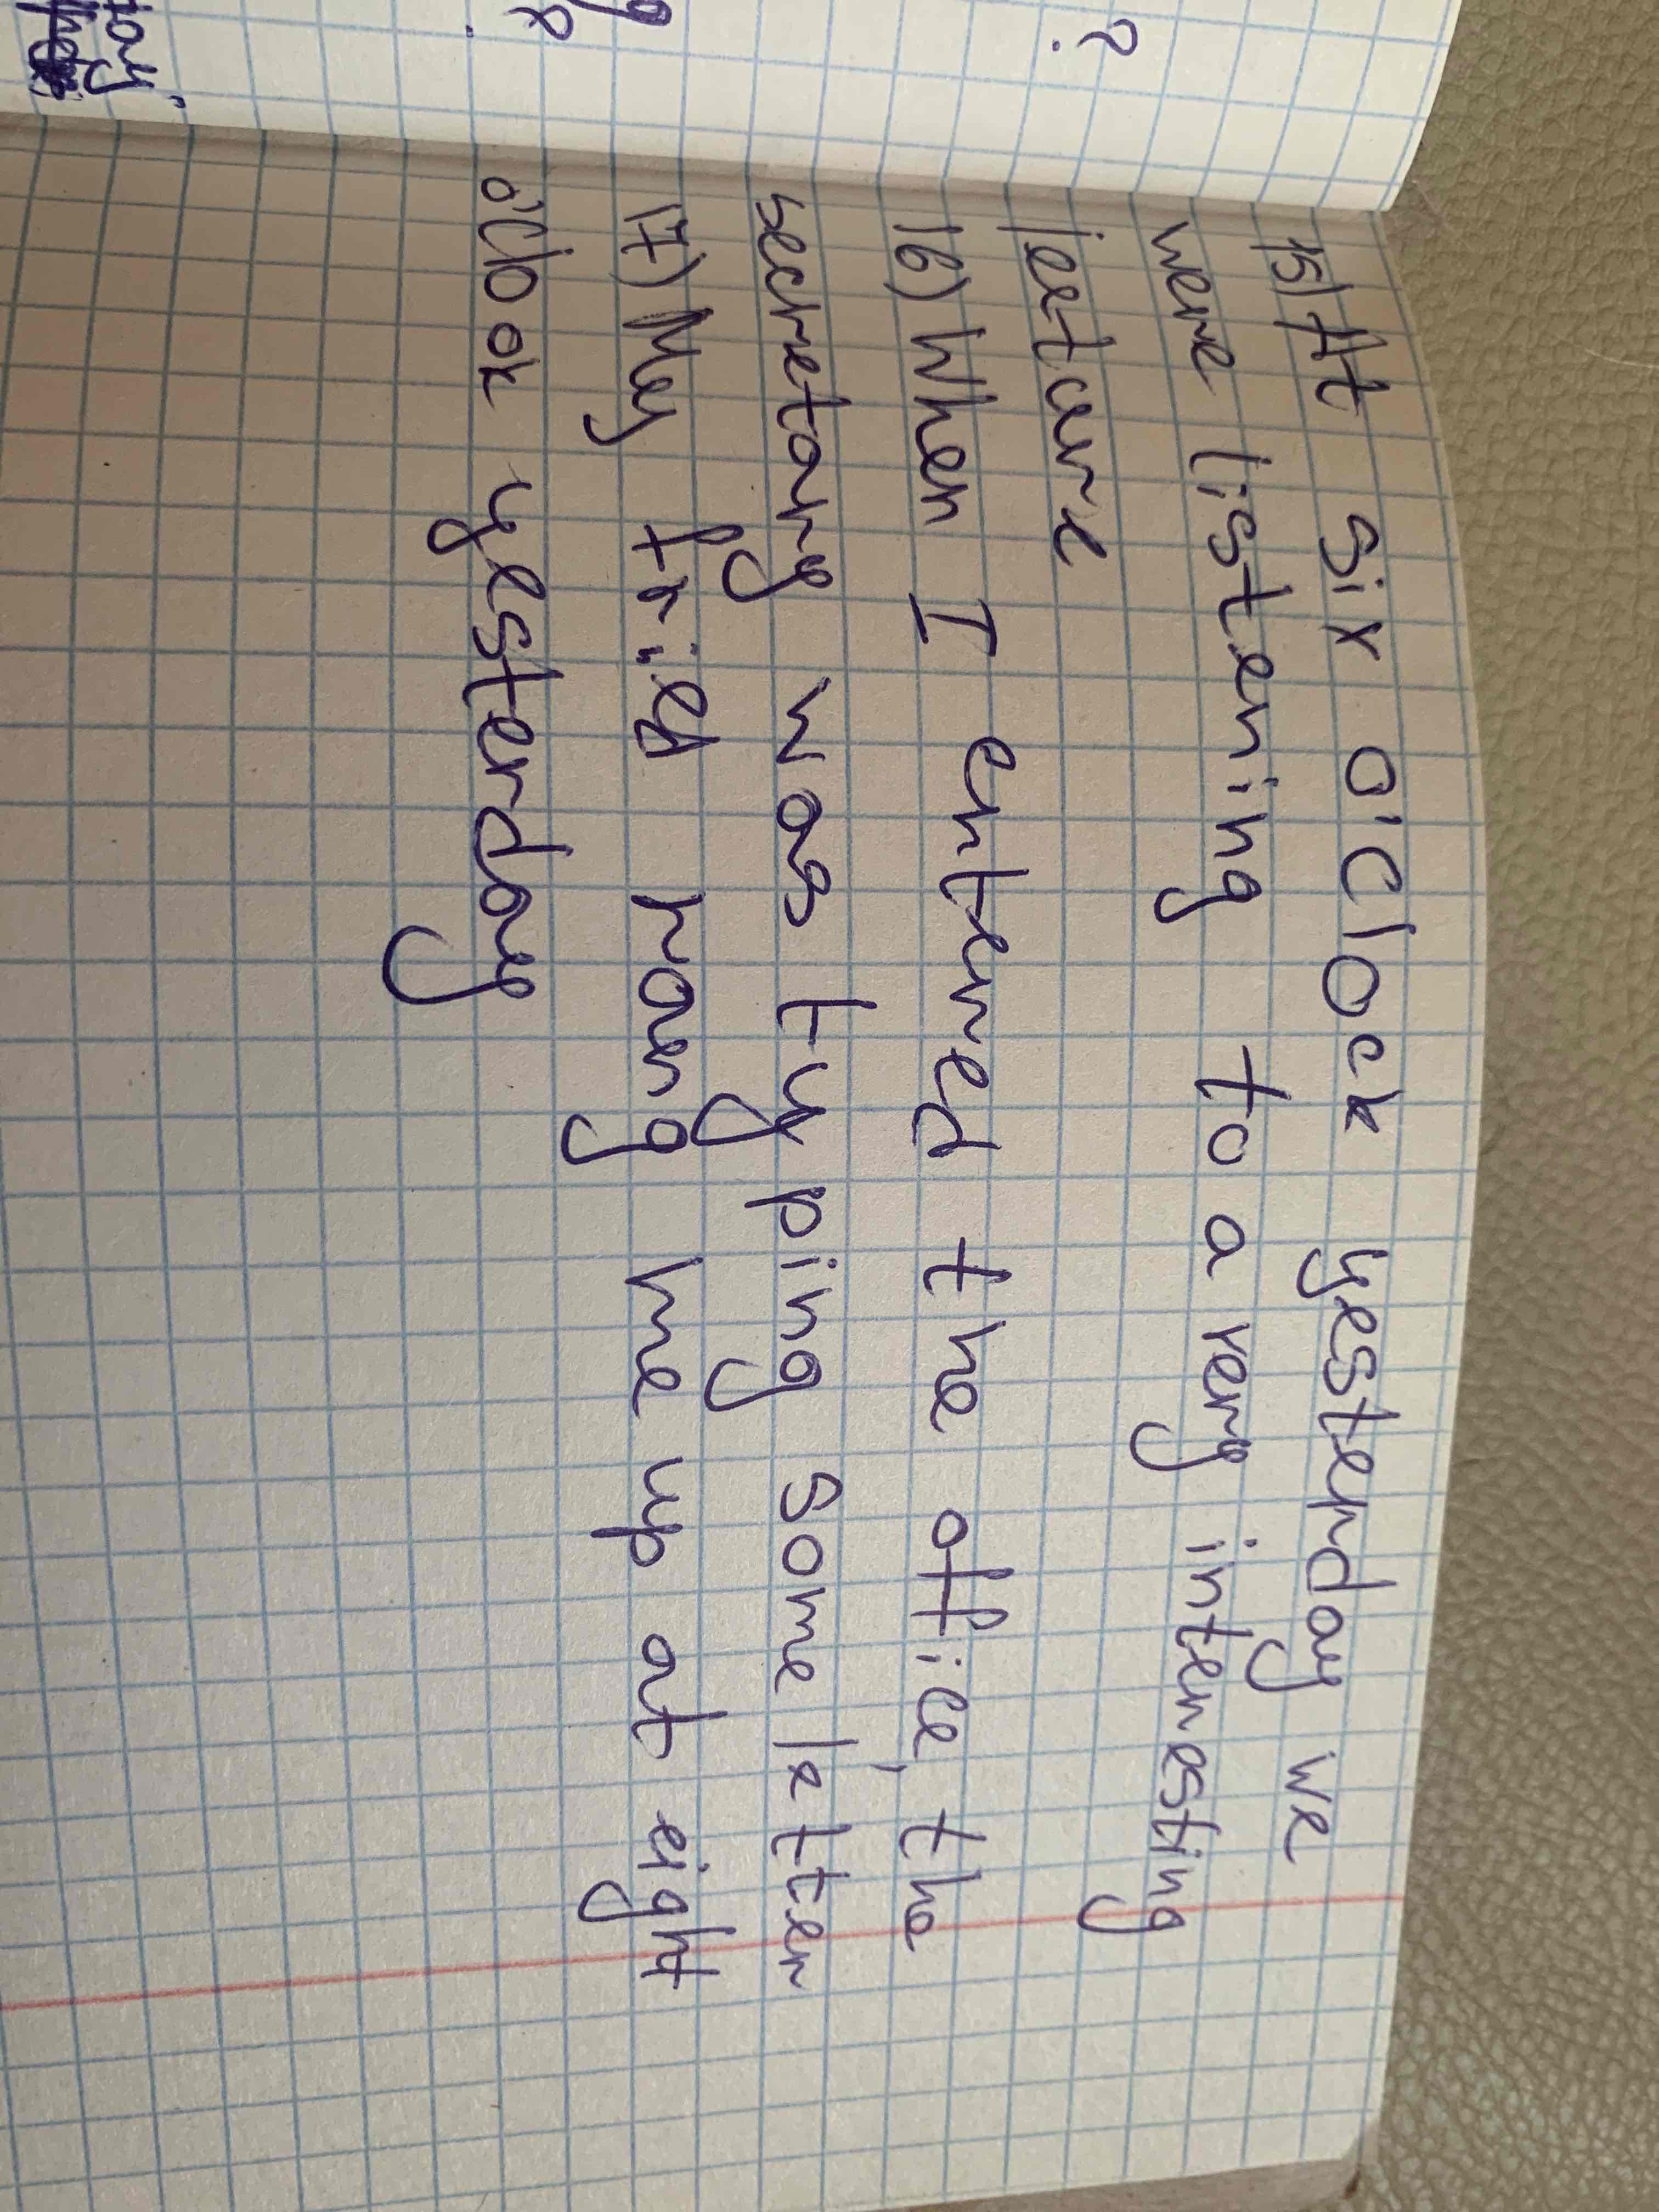 15) At six o'clock yesterday we
were listening to a very interesting
lecture
16) When I entered the office, the
secretary was typing some letter
17) My fried rang me up at eight
o'clook yesterday
?